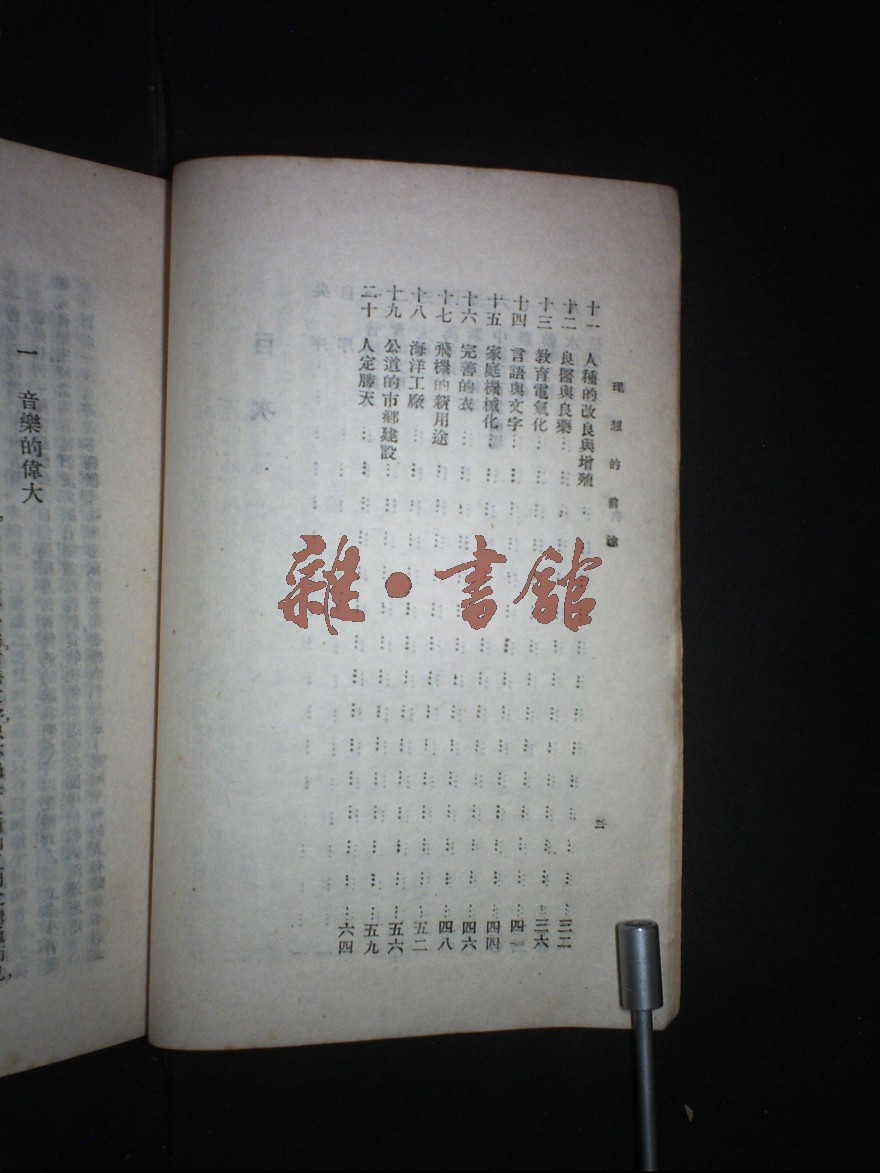 理想的前途
二
十一 人種的改良與增殖……三二
十二 良醫與良藥……三六
十三 教育電氣化……四一
十四 言語與文字……四四
十五 家庭機械化……四六
十六 完善的衣……四八
十七 飛機的新用途……五二
十八 海洋工廠……五六
十九 公道的市鄉建設……五九
二十 人定勝天……六四
一 音樂的偉大
雜·書館